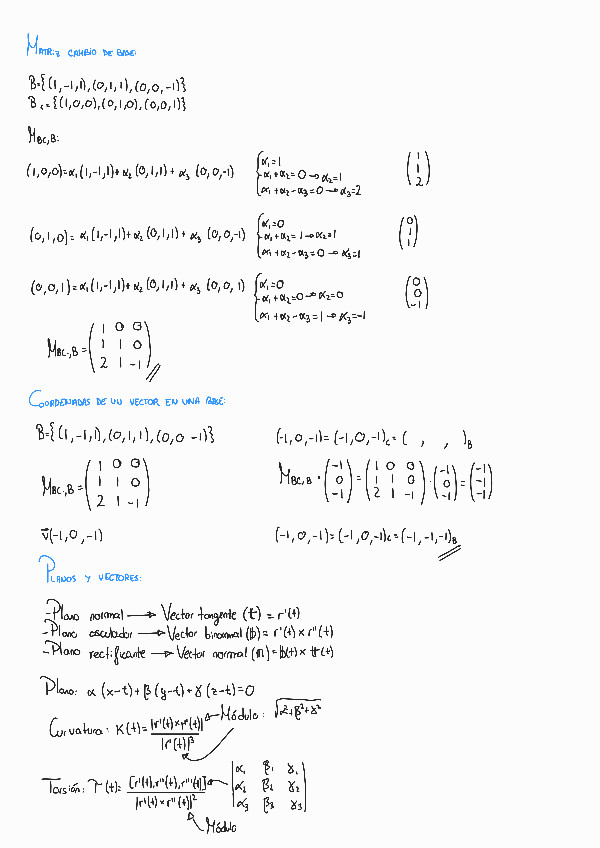 MATRIZ CAMBIO DE BASE:
B={(1,-1,1),(0,1,1),(0,0,-1)}
Bc={(1,0,0),(0,1,0),(0,0,1)}
M_BC,B:
(1,0,0)=α₁(1,-1,1)+α₂(0,1,1)+α₃(0,0,-1) { α₁=1 ( 1 )
-α₁+α₂=0→α₂=1 ( 1 )
α₁+α₂-α₃=0→α₃=2 ( 2 )
(0,1,0)=α₁(1,-1,1)+α₂(0,1,1)+α₃(0,0,-1) { α₁=0 ( 0 )
-α₁+α₂=1→α₂=1 ( 1 )
α₁+α₂-α₃=0→α₃=1 ( 1 )
(0,0,1)=α₁(1,-1,1)+α₂(0,1,1)+α₃(0,0,1) { α₁=0 ( 0 )
-α₁+α₂=0→α₂=0 ( 0 )
α₁+α₂-α₃=1→α₃=-1 ( -1 )
M_BC,B = ( 1 0 0
1 1 0
2 1 -1 )
COORDENADAS DE UN VECTOR EN UNA BASE:
B={(1,-1,1),(0,1,1),(0,0 -1)} (-1,0,-1)=(-1,0,-1)c=( , , )B
M_BC,B = ( 1 0 0 / 1 1 0 / 2 1 -1 ) M_BC,B · ( -1 / 0 / -1 ) = ( 1 0 0 / 1 1 0 / 2 1 -1 ) · ( -1 / 0 / -1 ) = ( -1 / -1 / -1 )
v⃗(-1,0,-1) (-1,0,-1)=(-1,0,-1)c=(-1,-1,-1)B
PLANOS Y VECTORES:
-Plano normal → Vector tangente (t) = r'(t)
-Plano osculador → Vector binormal (b) = r'(t) × r''(t)
-Plano rectificante → Vector normal (n) = b(t) × t(t)
Plano: α(x-t)+β(y-t)+γ(z-t)=0
Curvatura: K(t)= |r'(t)×r''(t)| / |r'(t)|³ Módulo: √(α²+β²+γ²)
Torsión: T(t)= [r'(t),r''(t),r'''(t)] / |r'(t)×r''(t)|² | α₁ β₁ γ₁ |
| α₂ β₂ γ₂ |
| α₃ β₃ γ₃ |
Módulo